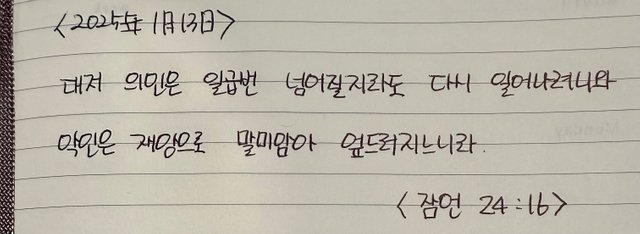 <2025年 1月 13日>
대저 의인은 일곱번 넘어질지라도 다시 일어나려니와
악인은 재앙으로 말미암아 엎드러지느니라.
<잠언 24:16>